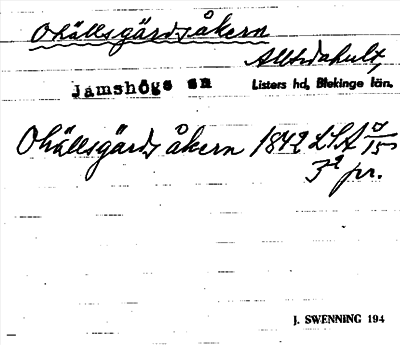 Ohällsgärdsåkern
Alltidahult,
Jämshögs sn Listers hd, Blekinge län.
Ohällsgärds åkern 1842 LSA
3² pr.
J. SWENNING 194